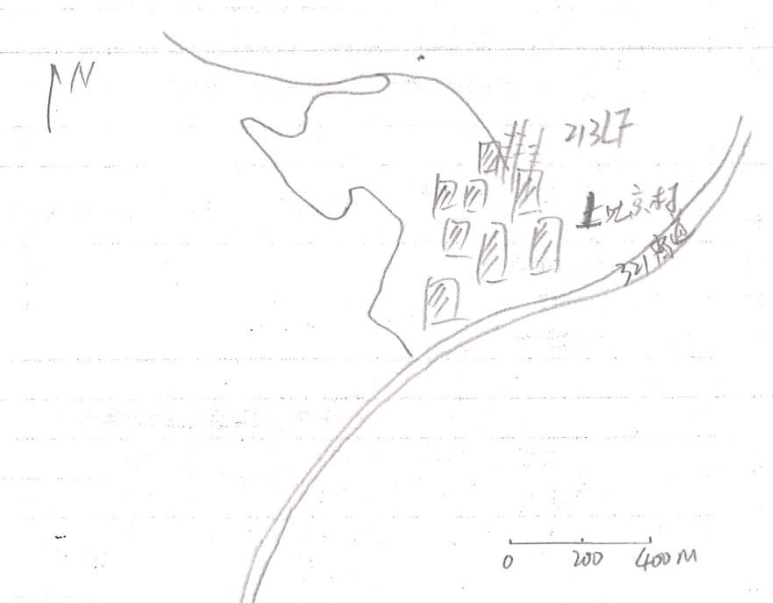 N
213LF
上北京村
321国道
0 200 400M